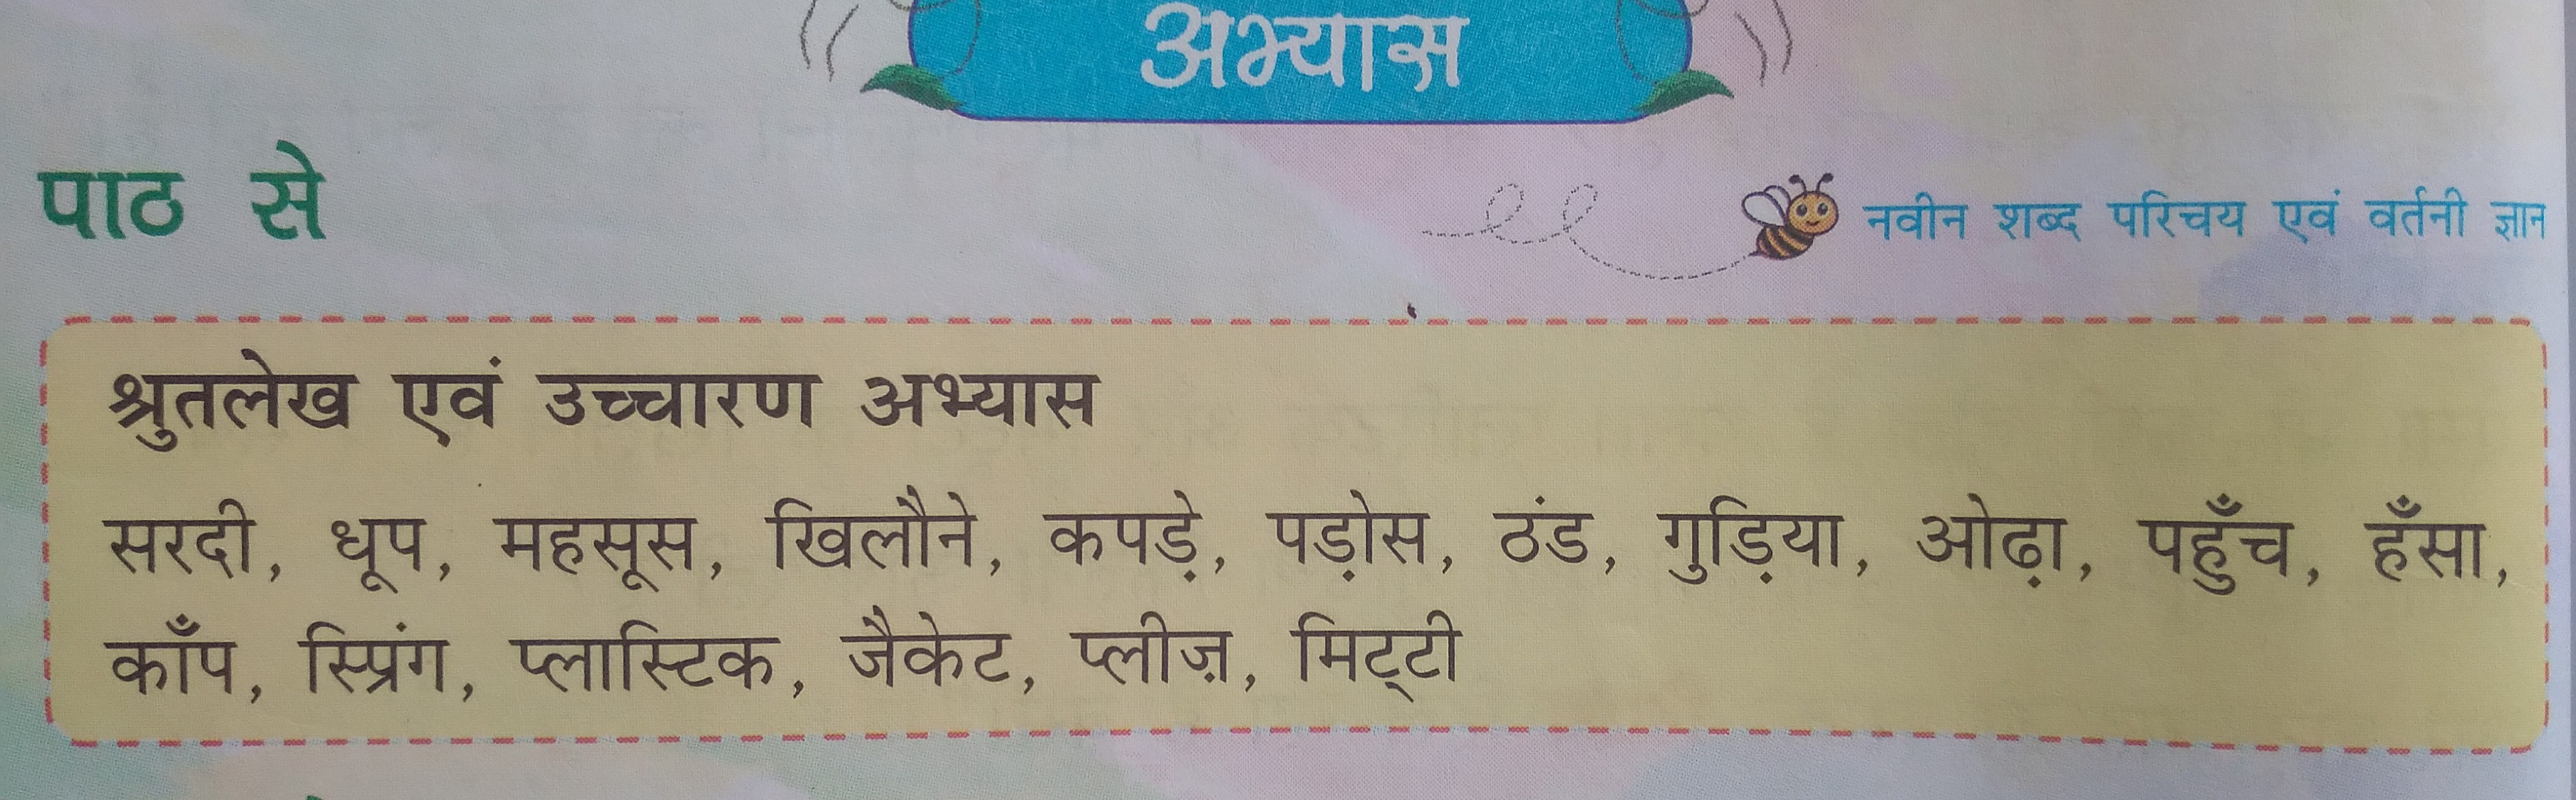 अभ्यास
पाठ से
नवीन शब्द परिचय एवं वर्तनी ज्ञान
श्रुतलेख एवं उच्चारण अभ्यास
सरदी, धूप, महसूस, खिलौने, कपड़े, पड़ोस, ठंड, गुड़िया, ओढ़ा, पहुँच, हँसा,
काँप, स्प्रिंग, प्लास्टिक, जैकेट, प्लीज़, मिट्‌टी